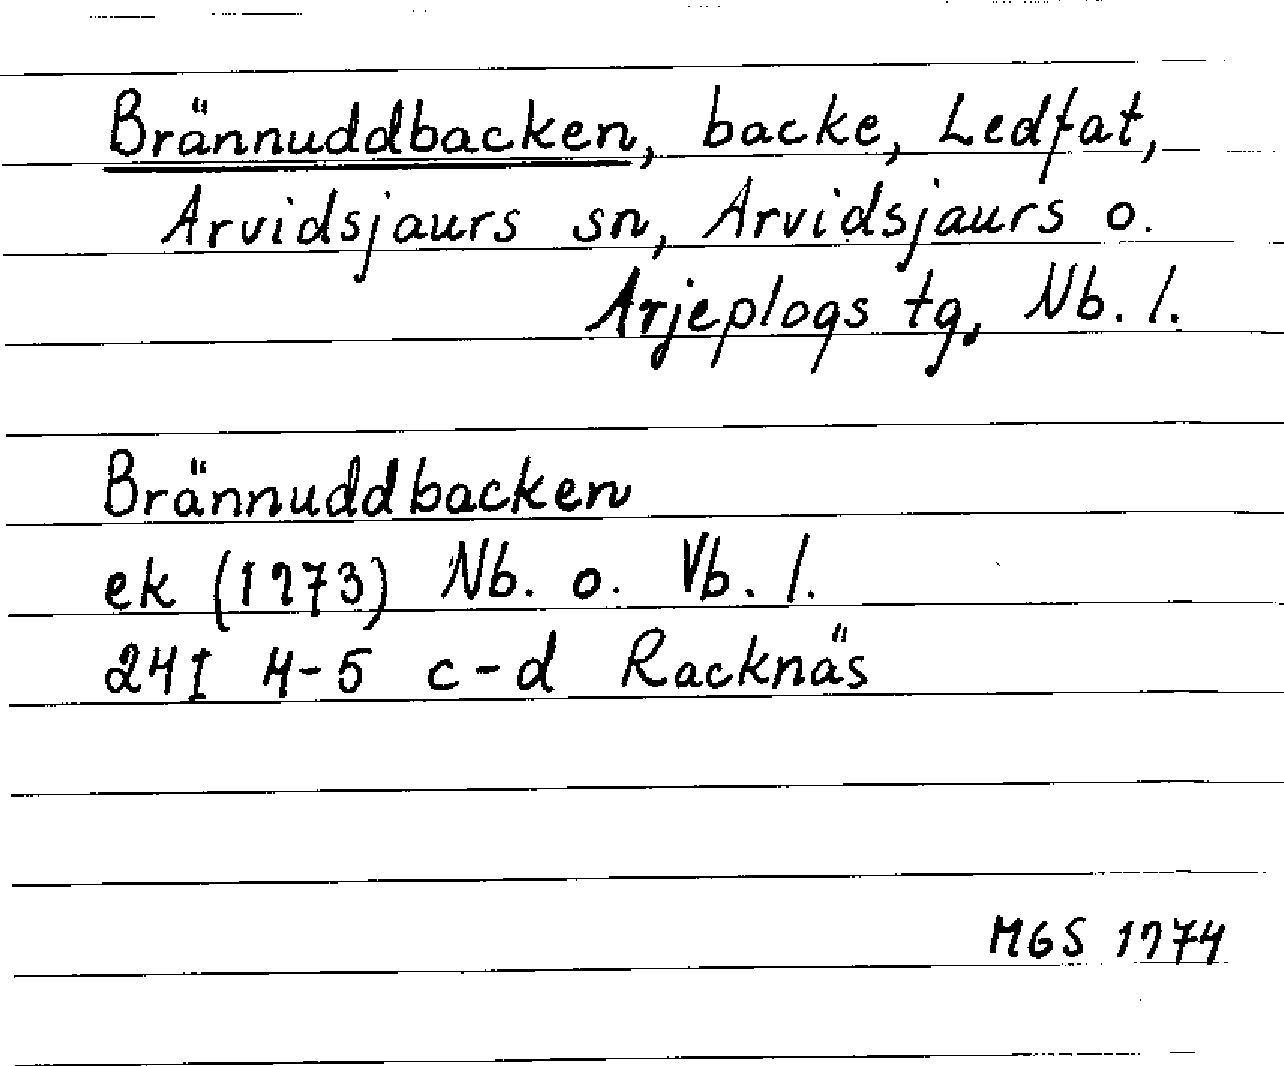 Brännuddbacken, backe, Ledfat,
Arvidsjaurs sn, Arvidsjaurs o.
Arjeplogs tg, Nb. l.
Brännuddbacken
ek (1973) Nb. o. Vb. l.
24I 4-5 c-d Racknäs
MGS 1974